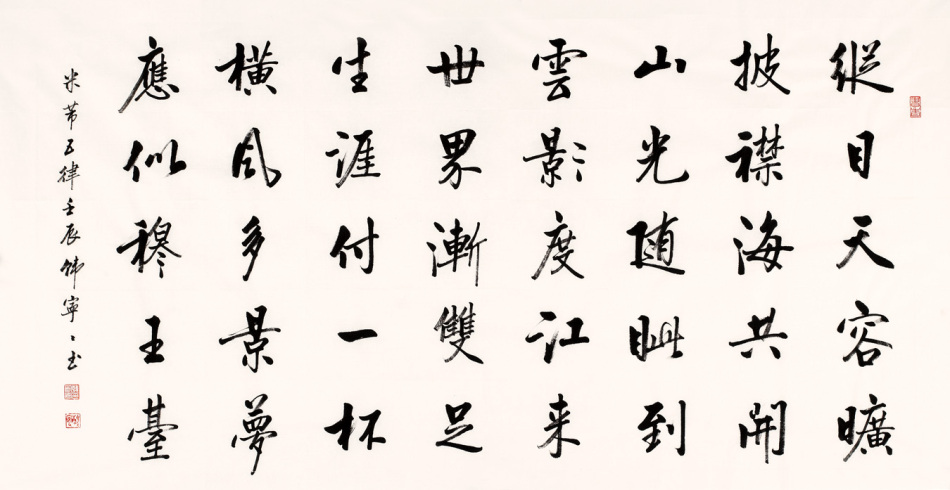 縱目天容曠
披襟海共開
山光随眦到
雲影度江来
世界漸雙足
生涯付一杯
橫風多景夢
應似穆王臺
米芾五律壬辰韩寧〻书